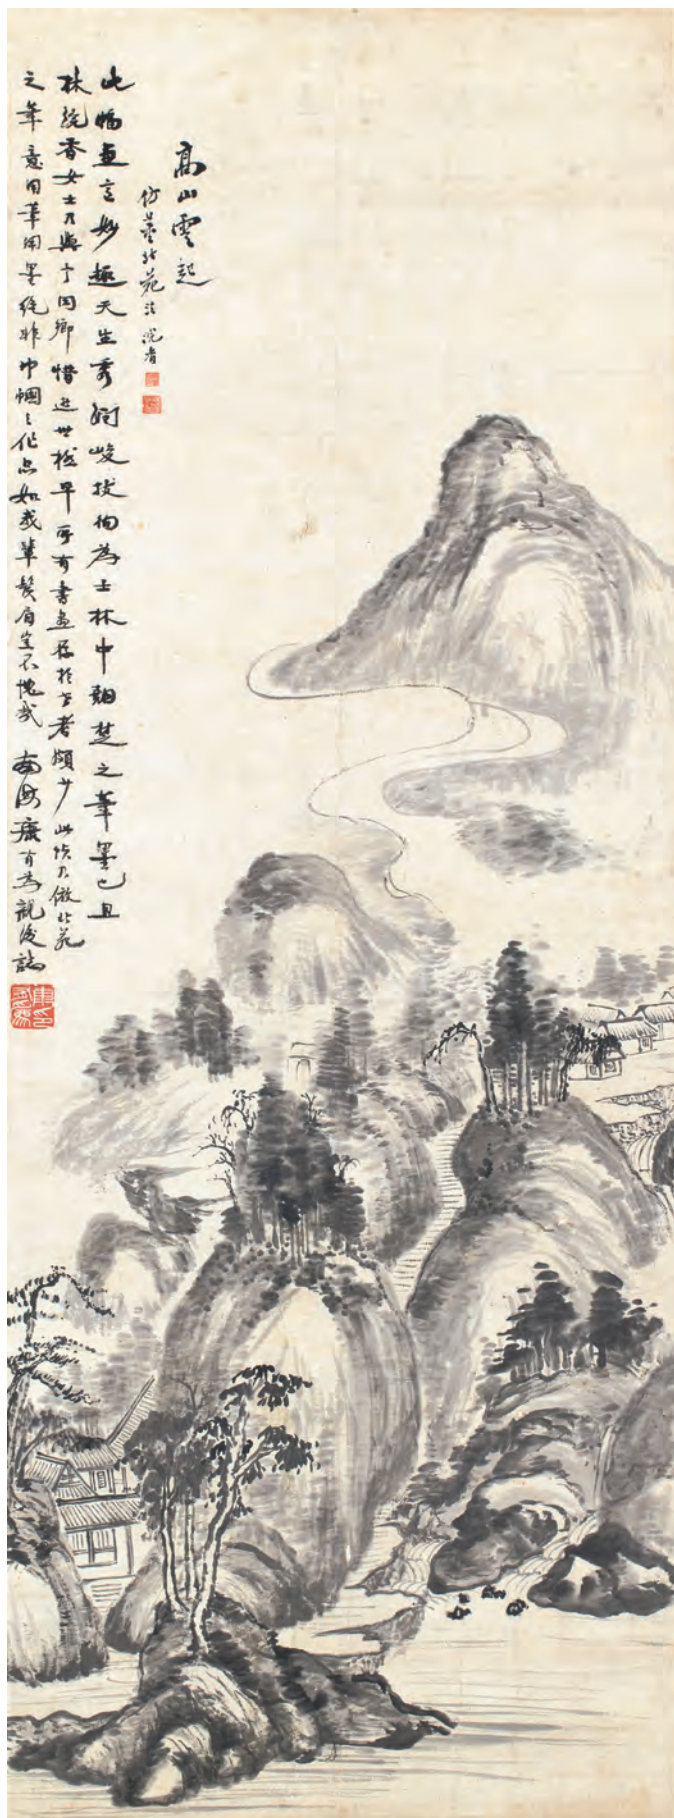 高山雲起
仿董北苑法 浣香
此幅画意妙趣天生秀潤峻拔洵為士林中翹楚之筆墨也且
林浣香女士乃與予同鄉惜逝世極早所有書画存於世者頗少此幀乃倣北苑
之筆意用筆用墨絕非巾幗之作品如我輩鬚眉豈不愧哉 南海康有為觀後誌